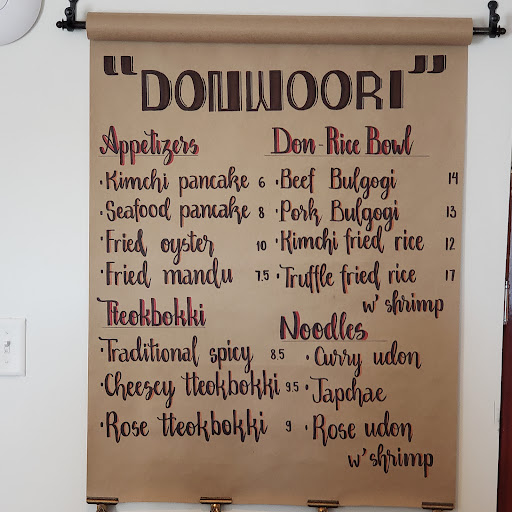 "DONWOORI"
Appetizers
·Kimchi pancake 6
·Seafood pancake 8
·Fried oyster 10
·Fried mandu 7.5
Tteokbokki
·Traditional spicy 8.5
·Cheesey tteokbokki 9.5
·Rose tteokbokki 9
Don-Rice Bowl
·Beef Bulgogi 14
·Pork Bulgogi 13
·Kimchi fried rice 12
·Truffle fried rice 17
w' shrimp
Noodles
·Curry udon
·Japchae
·Rose udon
w' shrimp